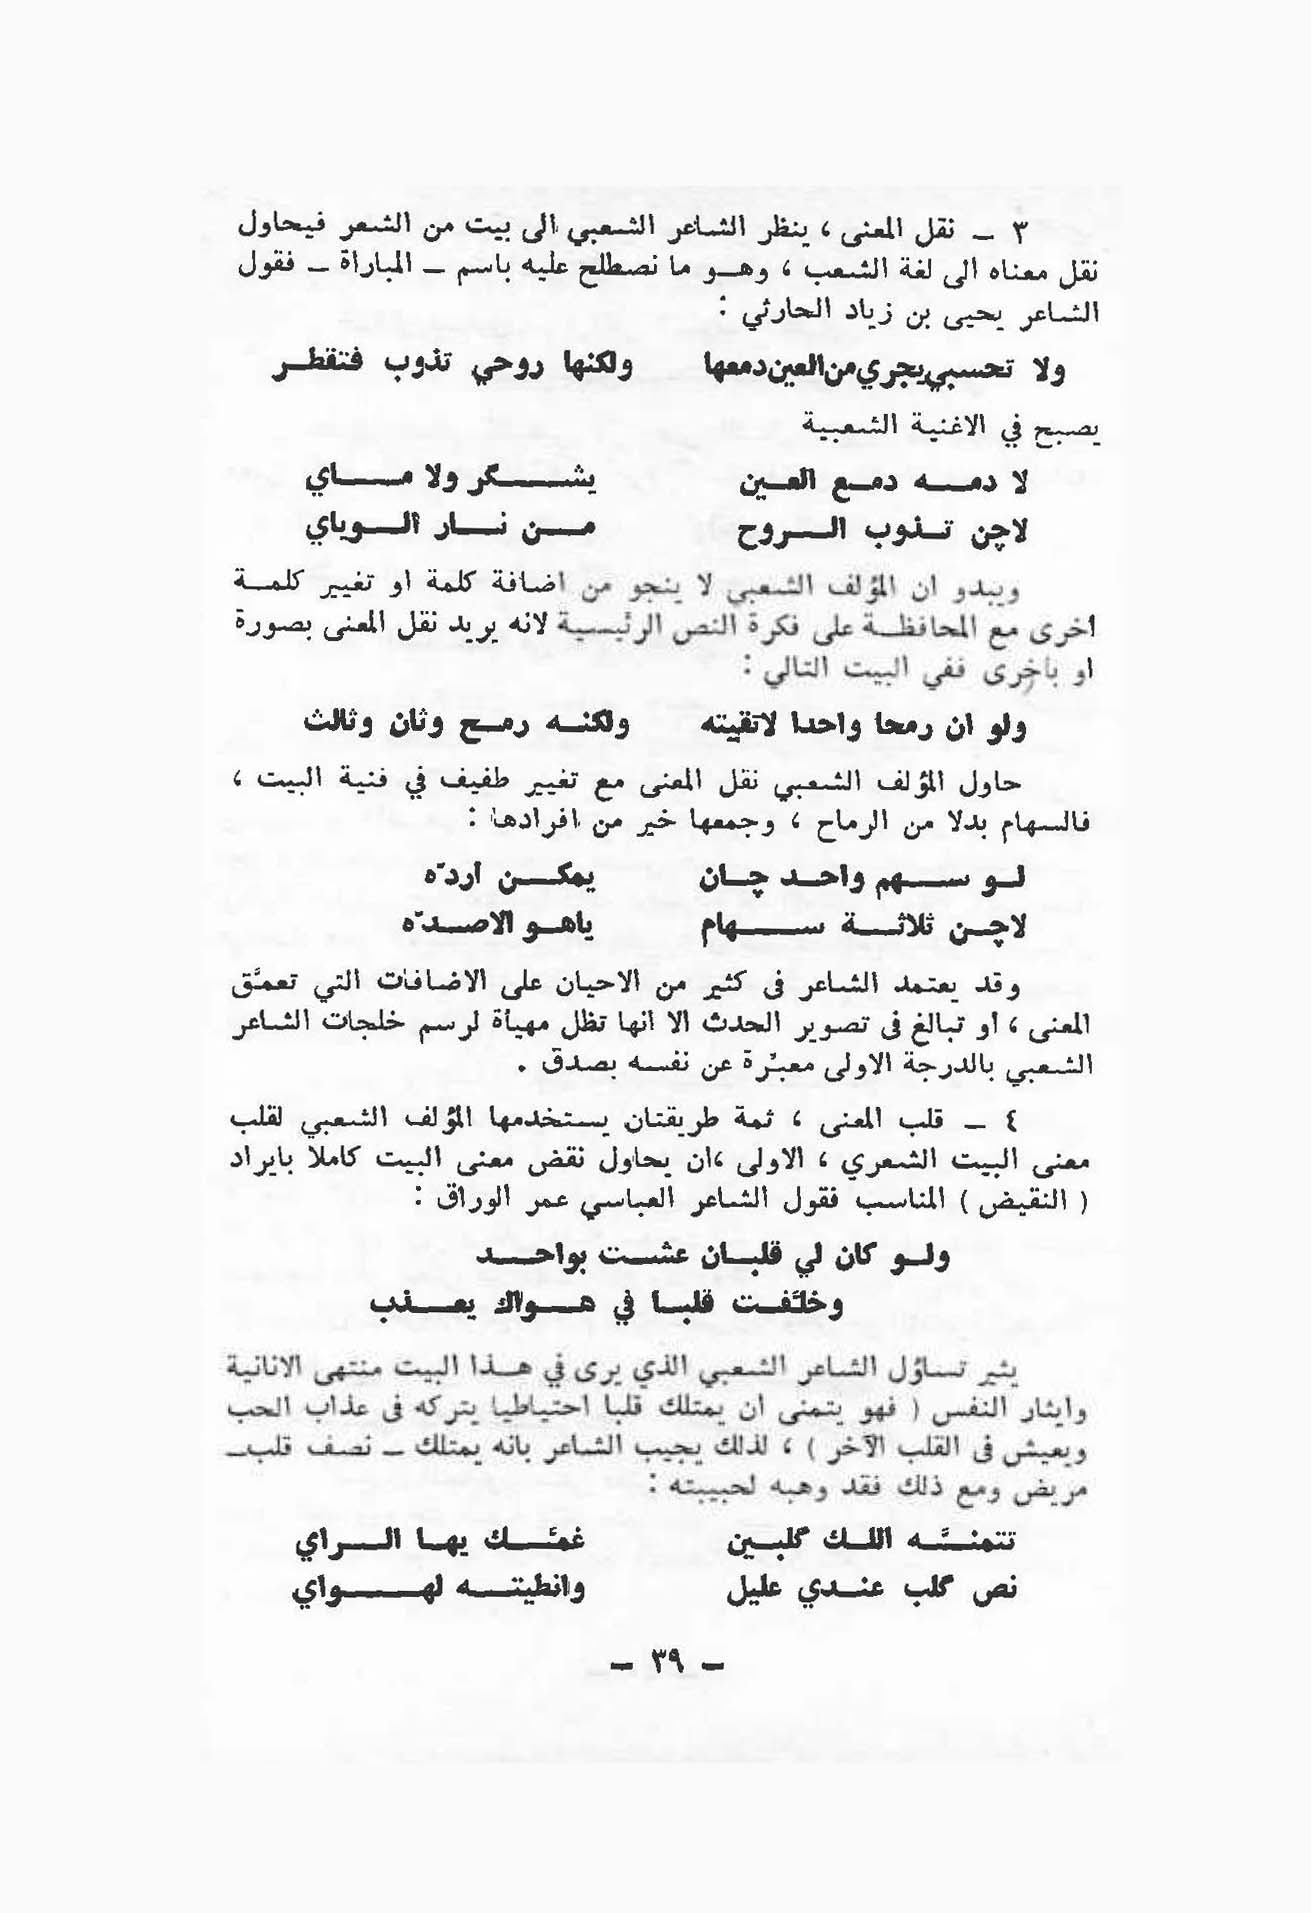 ٣ ــ نقل المعنى ، ينظر الشاعر الشعبي الى بيت من الشعر فيحاول
نقل معناه الى لغة الشعب ، وهو ما نصطلح عليه باسم ــ المباراة ــ فقول
الشاعر يحيى بن زياد الحارثي :
ولا تحسبي يجري من العين دمعها ولكنها روحي تذوب فتقطر
يصبح في الاغنية الشعبية
لا دمه دمع العين يشگر ولا ماي
لاچن تذوب الروح من نار الوياي
ويبدو ان المؤلف الشعبي لا ينجو من اضافة كلمة او تغيير كلمة
أخرى مع المحافظة على فكرة النص الرئيسية لانه يريد نقل المعنى بصورة
او باخرى ففي البيت التالي :
ولو ان رمحا واحدا لاتقيته ولكنه رمح وثان وثالث
حاول المؤلف الشعبي نقل المعنى مع تغيير طفيف في فنية البيت ،
فالسهام بدلا من الرماح ، وجمعها خير من افرادها :
لو سهم واحد چان يمكن اردّه
لاچن ثلاثة سهام ياهو الاصدّه
وقد يعتمد الشاعر فى كثير من الاحيان على الاضافات التي تعمّق
المعنى ، أو تبالغ فى تصوير الحدث الا انها تظل مهيأة لرسم خلجات الشاعر
الشعبي بالدرجة الاولى معبّرة عن نفسه بصدق .
٤ ــ قلب المعنى ، ثمة طريقتان يستخدمها المؤلف الشعبي لقلب
معنى البيت الشعري ، الاولى ،ان يحاول نقض معنى البيت كاملا بايراد
( النقيض ) المناسب فقول الشاعر العباسي عمر الوراق :
ولو كان لي قلبان عشت بواحد
وخلّفت قلبا في هواك يعذب
يثير تساؤل الشاعر الشعبي الذي يرى في هذا البيت منتهى الانانية
وايثار النفس ( فهو يتمنى ان يمتلك قلبا احتياطيا يتركه فى عذاب الحب
ويعيش فى القلب الآخر ) ، لذلك يجيب الشاعر بانه يمتلك ــ نصف قلب ــ
مريض ومع ذلك فقد وهبه لحبيبته :
تتمنّه اللك گلبين غمّك يها الراي
نص گلب عندي عليل وانطيته لهواي
ــ ٣٩ ــ